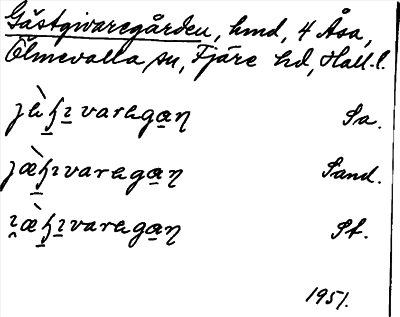 Gästgivaregården, hmd, 4 Åsa,
Ölmevalla sn, Fjäre hd, Hall. l.
Sa.
Sand.
St.
1951.